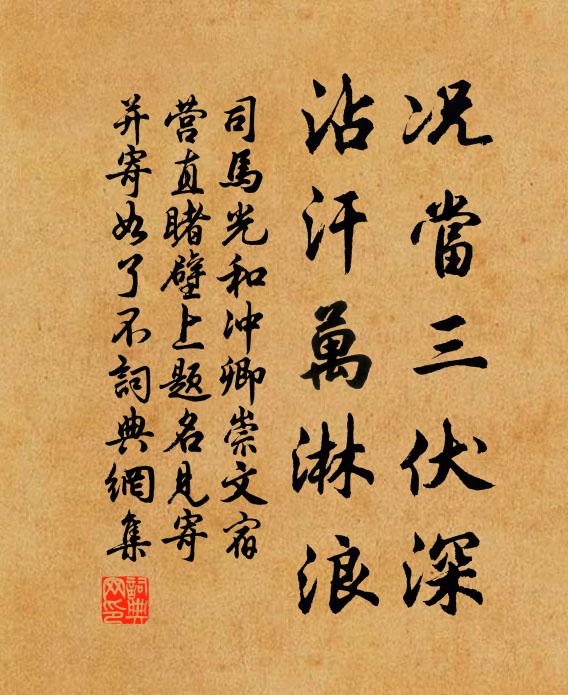 况當三伏深
沾汗萬淋浪
司馬光和沖卿崇文宿
营直睹壁上題名見寄
并寄如了不詞典網集
詞典
网印